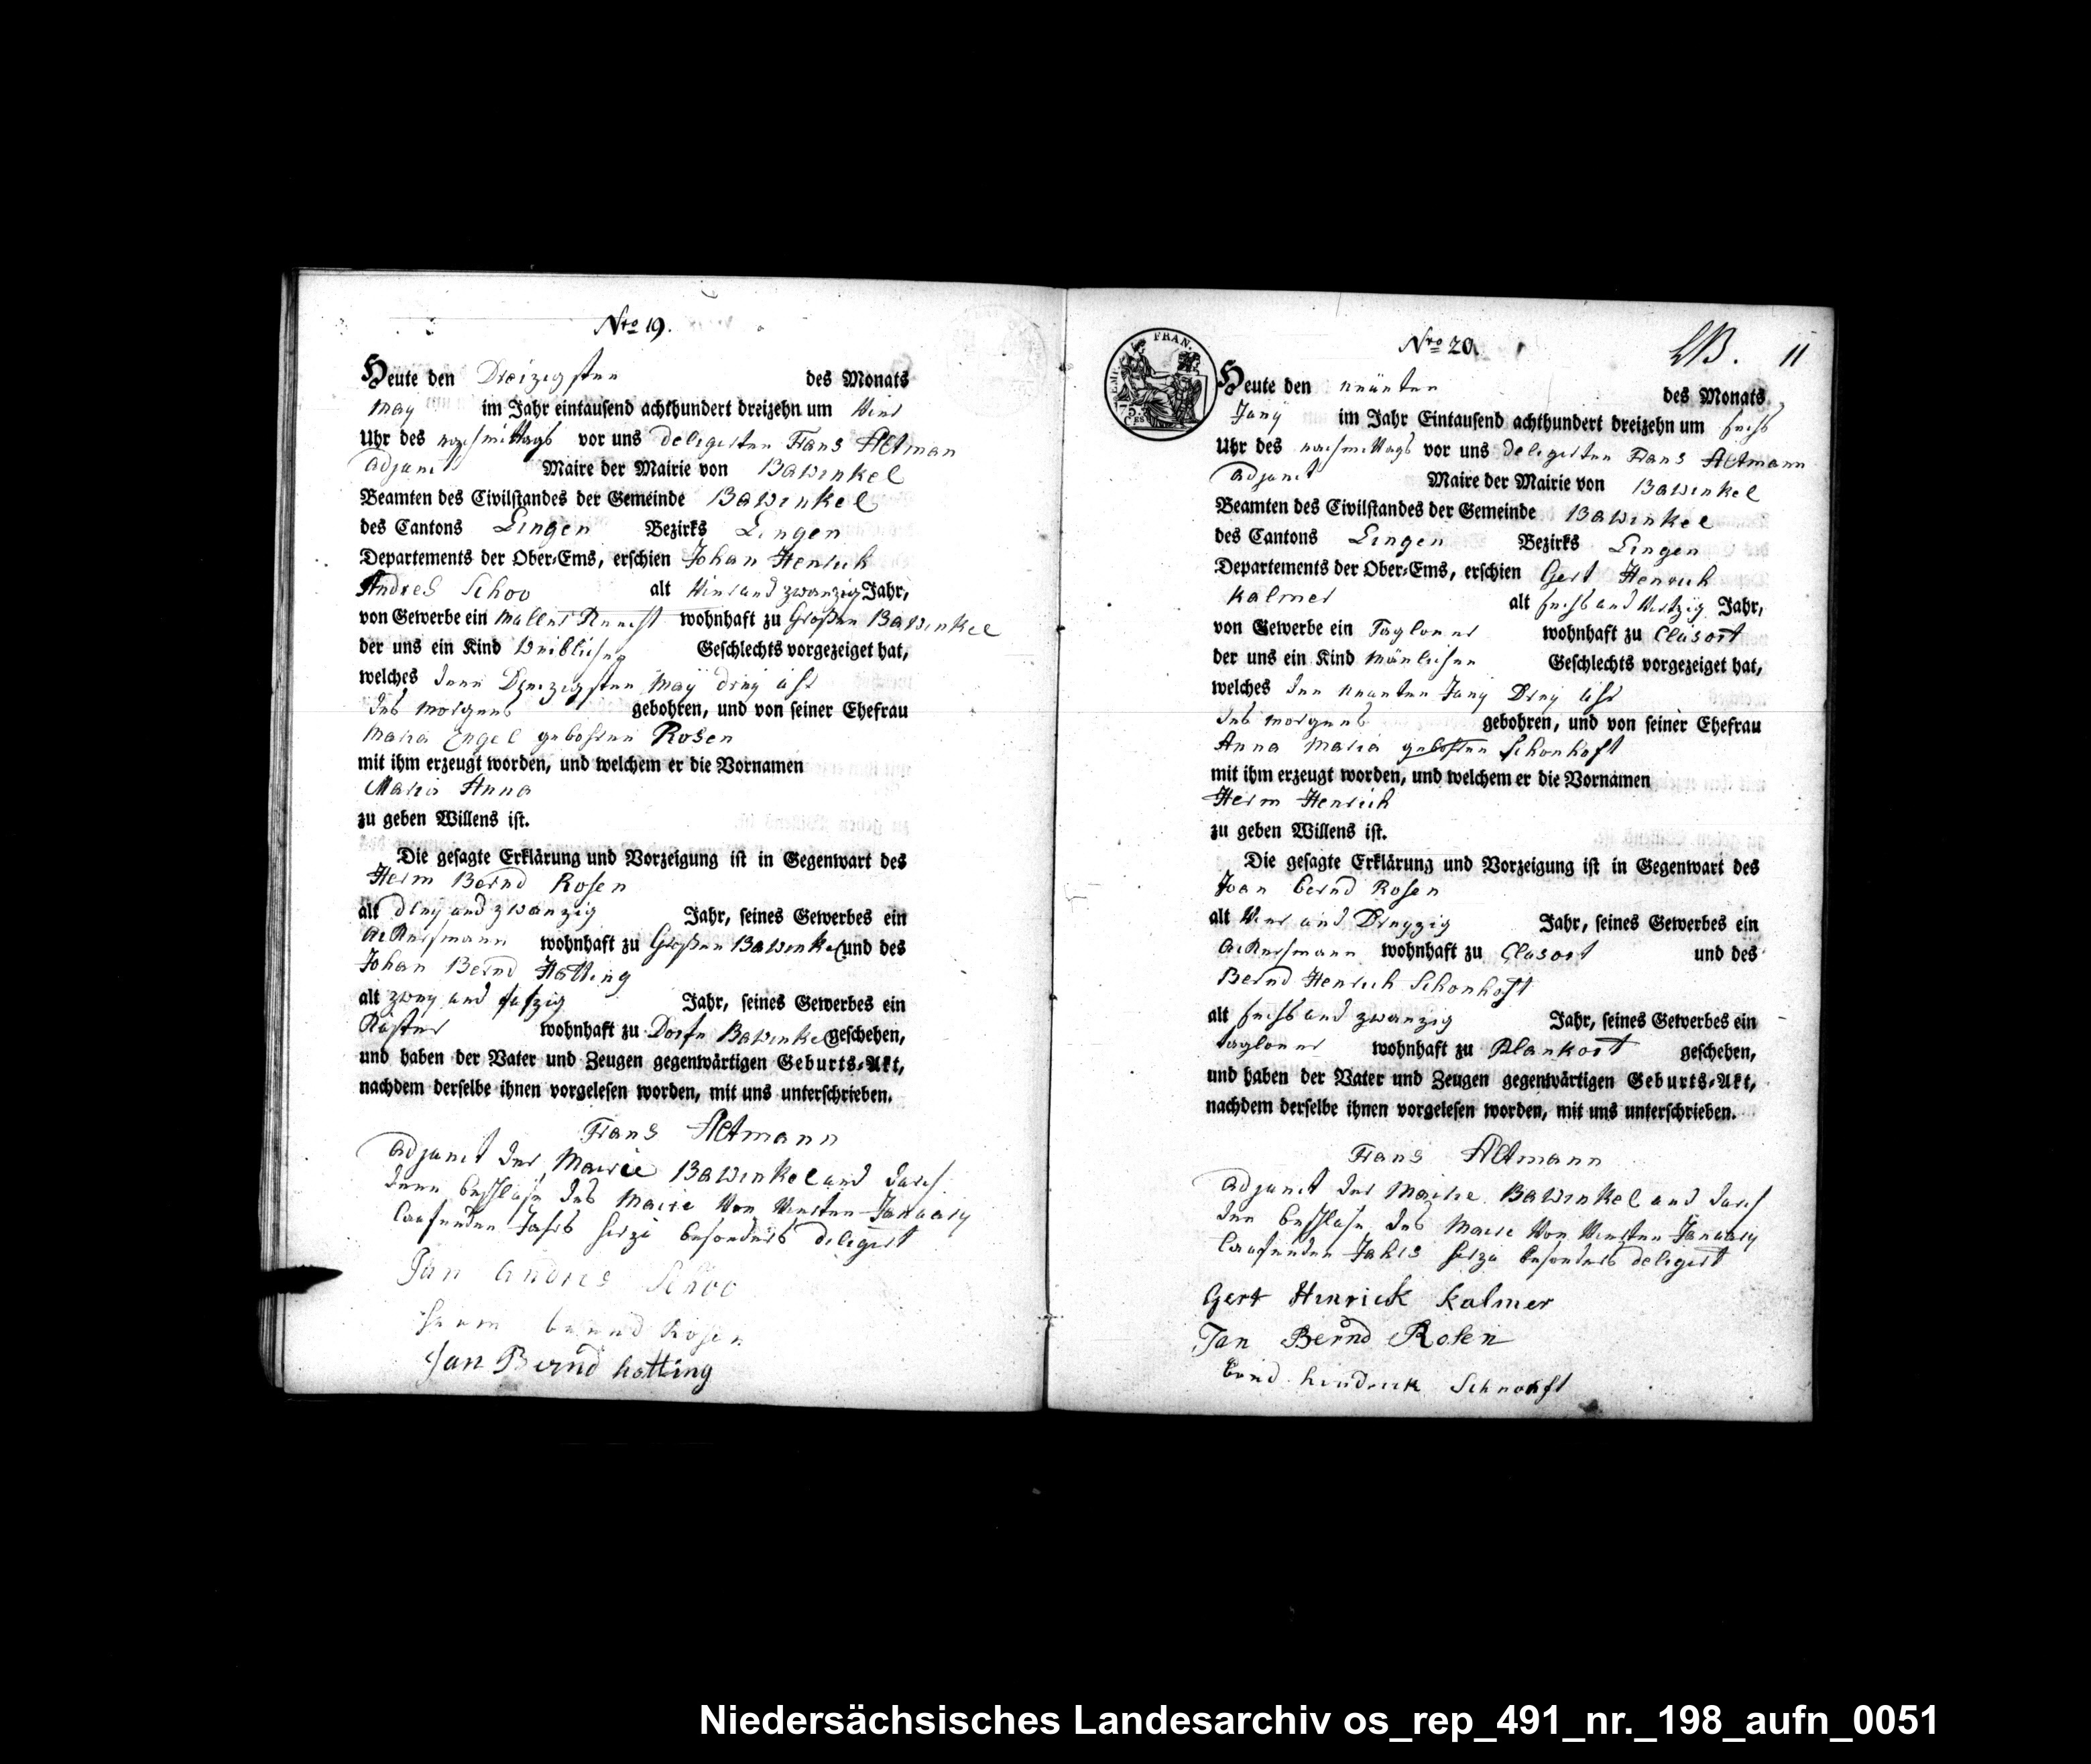 Nro 19.
Heute den Dreizigsten des Monats
May im Jahr eintausend achthundert dreizehn um Vier
Uhr des nachmittags vor uns delegirten Frans Altman
Adjunct Maire der Mairie von Bawinkel
Beamten des Civilstandes der Gemeinde Bawinkel
des Cantons Lingen Bezirks Lingen
Departements der Ober-Ems, erschien Johan Henrich
Andres Schoo alt Vier und zwanzig Jahr,
von Gewerbe ein Muller Knecht wohnhaft zu Großen Bawinkel
der uns ein Kind Weiblichen Geschlechts vorgezeiget hat,
welches denn Dreizigsten May drey uhr
des morgens gebohren, und von seiner Ehefrau
Maria Engel gebohren Rosen
mit ihm erzeugt worden, und welchem er die Vornamen
Maria Anna
zu geben Willens ist.
Die gesagte Erklärung und Vorzeigung ist in Gegenwart des
Herm Bernd Rosen
alt drey und zwanzig Jahr, seines Gewerbes ein
Ackersmann wohnhaft zu Großen Bawinkel und des
Johan Bernd Hotting
alt zwey und fufzig Jahr, seines Gewerbes ein
Küster wohnhaft zu Dorfe Bawinkel geschehen,
und haben der Vater und Zeugen gegenwärtigen Geburts-Akt,
nachdem derselbe ihnen vorgelesen worden, mit uns unterschrieben.
Frans Altmann
Adjunct der Mairie Bawinkel und durch
denn beschluße des Maire Von Vierten January
laufenden Jahrs hirzu besonders delegirt
Jan Andres Schoo
Herm bernd Rosen
Jan Bernd hotting
FRAN.
75.
CES
Nro 20
11
Heute den neünten des Monats
Juny im Jahr Eintausend achthundert dreizehn um sechs
Uhr des nachmittags vor uns delegirten Frans Altmann
Adjunct Maire der Mairie von Bawinkel
Beamten des Civilstandes der Gemeinde Bawinkel
des Cantons Lingen Bezirks Lingen
Departements der Ober-Ems, erschien Gert Henrich
Kalmer alt sechs und Viertzig Jahr,
von Gewerbe ein Tagloner wohnhaft zu Clusort
der uns ein Kind Mänlichen Geschlechts vorgezeiget hat,
welches den neunten Juny Drey uhr
des morgens gebohren, und von seiner Ehefrau
Anna Maria gebohren Schonhoft
mit ihm erzeugt worden, und welchem er die Vornamen
Herm Henrich
zu geben Willens ist.
Die gesagte Erklärung und Vorzeigung ist in Gegenwart des
Joan bernd Rosen
alt Vier und Dreyzig Jahr, seines Gewerbes ein
Ackersmann wohnhaft zu Clusort und des
Bernd Henrich Schonhoft
alt sechs und zwanzig Jahr, seines Gewerbes ein
tagloner wohnhaft zu Plankort geschehen,
und haben der Vater und Zeugen gegenwärtigen Geburts-Akt,
nachdem derselbe ihnen vorgelesen worden, mit uns unterschrieben.
Frans Altmann
Adjunct der Mairie Bawinkel und durch
den beschluße des Maire Von Vierten January
laufenden Jahrs hirzu besonders delegirt
Gert Hinrick Kalmer
Jan Bernd Rosen
bernd hindrick Schnohft
Niedersächsisches Landesarchiv os_rep_491_nr._198_aufn_0051